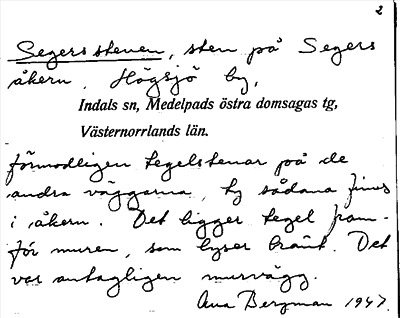 2
Segersstenen, sten på Segers
åkern. Högsjö by,
Indals sn, Medelpads östra domsagas tg,
Västernorrlands län.
förmodligen tegelstenar på de
andra väggarna, ty sådana finns
i åkern. Det ligger tegel fram-
för muren, som lyser bränt. Det
var antagligen murvägg.
Ana Bergman 1947.